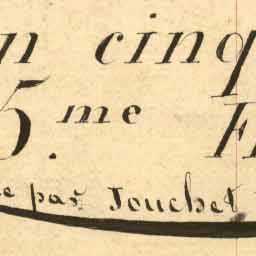 n cinq
5.me F
e par Jouchet